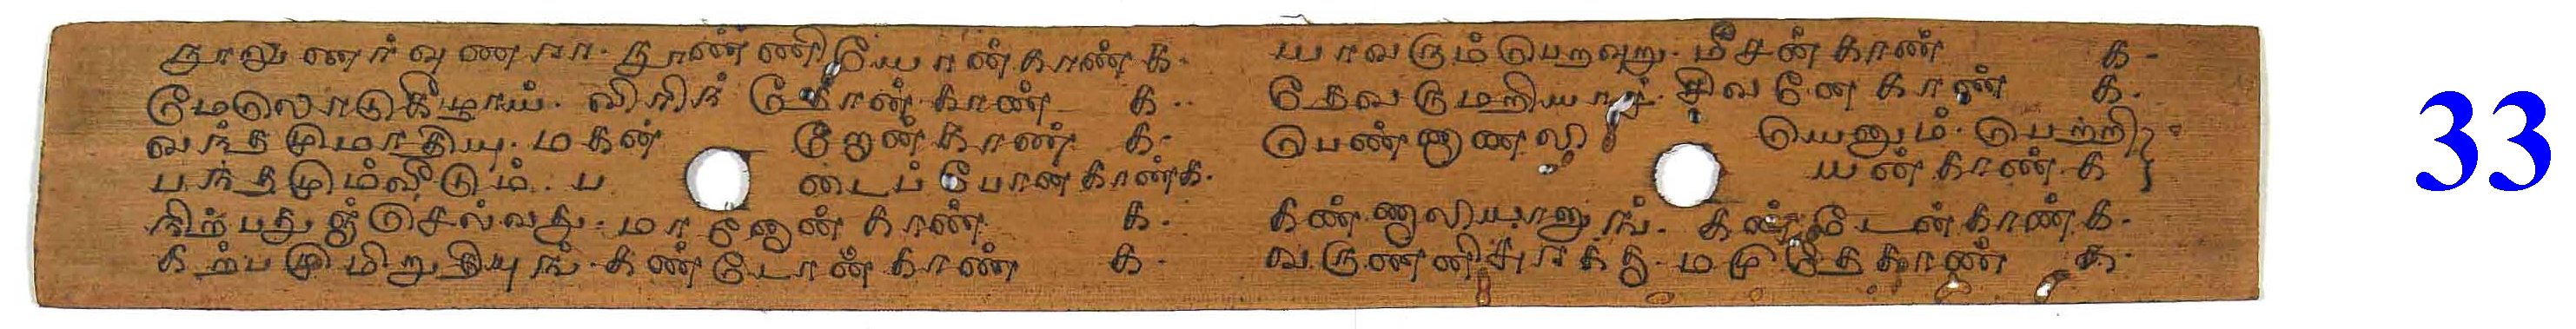 நூலுணர்வுணரா. நூண்ணியோன்காண்க.
மேலொடுகீழாய். விரிந்தோன்காண் க.
வந்தமுமாதியு. மகன்றோன்காண் க.
பந்தமும்வீடும். படைப்போன்காண்க.
நிற்பதுஞ்செல்வது. மானோன்காண் க.
கற்பமுமிறுதியுங். கண்டோன்காண் க.
யாவரும்பெறவுறு. மீசன்காண் க.
தேவருமறியாச். சிவனேகாண் க.
பெண்ணாணலியெனும். பெற்றி
யன்காண். க
கண்ணாலியானுங். கண்டேன்காண்க.
வருணனிசுரக்கு. மமுதேகாண் க.
33